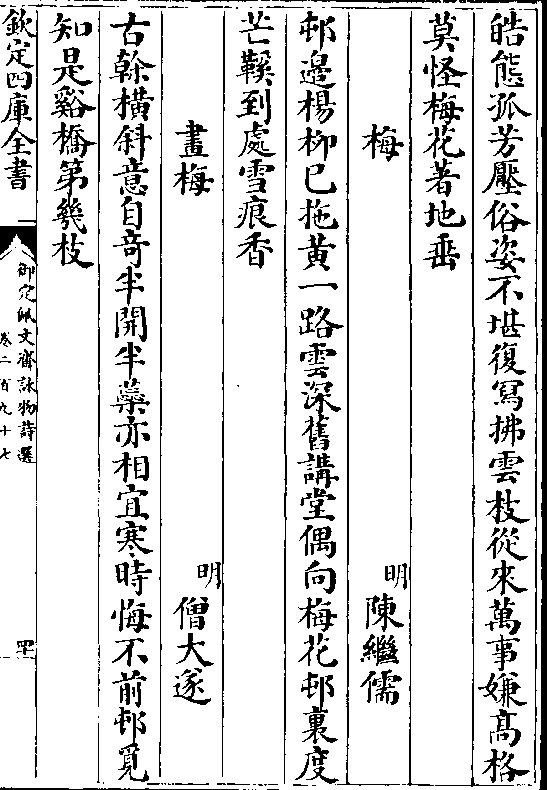 皓態孤芳壓俗姿不堪復寫拂雲枝從來萬事嫌髙格
莫怪梅花著地垂
梅 明 陳繼儒
邨邉楊柳已拖黃一路雲深舊講堂偶向梅花邨裏度
芒鞵到處雪痕香
畫梅 明 僧大遂
古榦橫斜意自竒半開半蘂亦相宜寒時悔不前邨覓
知是谿橋第幾枝
欽定四庫全書
御定佩文齋詠物詩選
卷二百九十七